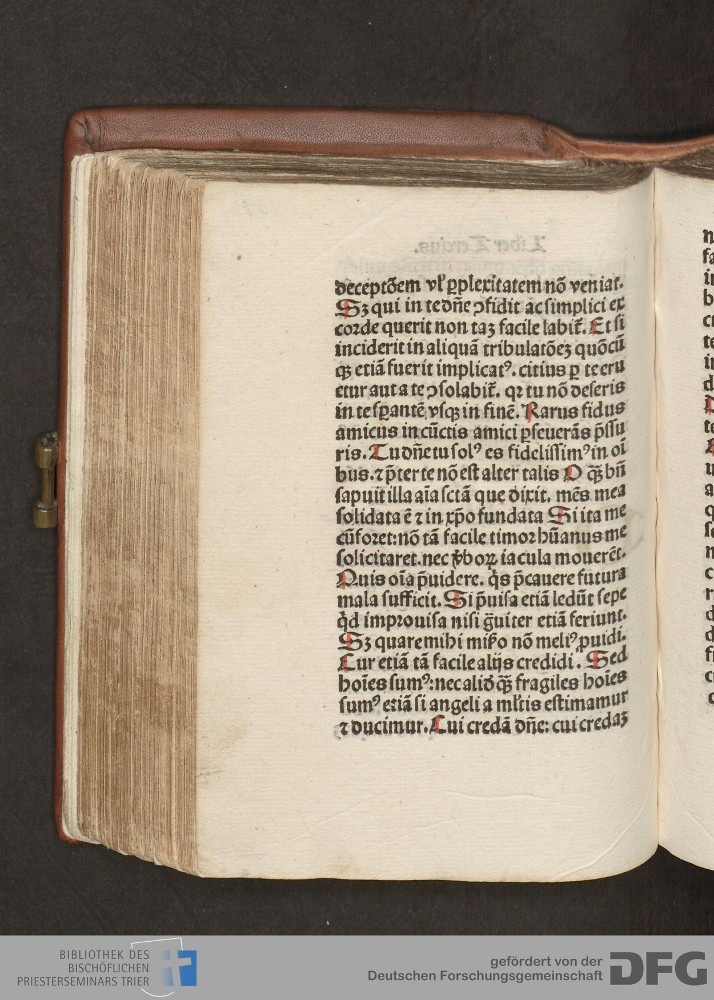 deceptõem vľ ꝑplexitatem nõ veniat.
Sꝫ qui in te dñe ↄfidit ac simplici ex
corde querit non taꝫ facile labit᷑. Et si
inciderit in aliquã tribulatõeꝫ quõcũ
qꝫ etiã fuerit implicatꝰ. citius ꝑ te eru
etur aut a te ↄsolabit᷑. qꝛ tu nõ deseris
in te sꝑantē vsqꝫ in finē. Rarus fidus
amicus in cũctis amici ꝑseuerãs p̃ssu
ris. Tu dñe tu solꝰ es fidelissimꝰ in oĩ
bus. ⁊ p̃ter te nõ est alter talis O qꝫ̃ bñ
sapuit illa aĩa sctã que dixit. mẽs mea
solidata ẽ ⁊ in xp̃o fundata Si ita me
cũ foret: nõ tã facile timor hũanus me
solicitaret. nec v̾boꝝ iacula mouerẽt.
Quis oĩa p̃uidere. q̇s p̃cauere futura
mala sufficit. Si p̃uisa etiã ledũt sepe
q̇d improuisa nisi g̃uiter etiã feriunt.
Sꝫ quare mihi mis̾o nõ meliꝰ ꝓuidi.
Cur etiã tã facile alijs credidi. Sed
hoĩes sumꝰ: nec aliđ qꝫ̃ fragiles hoĩes
sumꝰ etiã si angeli a ml̾tis estimamur
⁊ ducimur. Cui credã dñe: cui credaꝫ
BIBLIOTHEK DES
BISCHÖFLICHEN
PRIESTERSEMINARS TRIER
gefördert von der
Deutschen Forschungsgemeinschaft
DFG